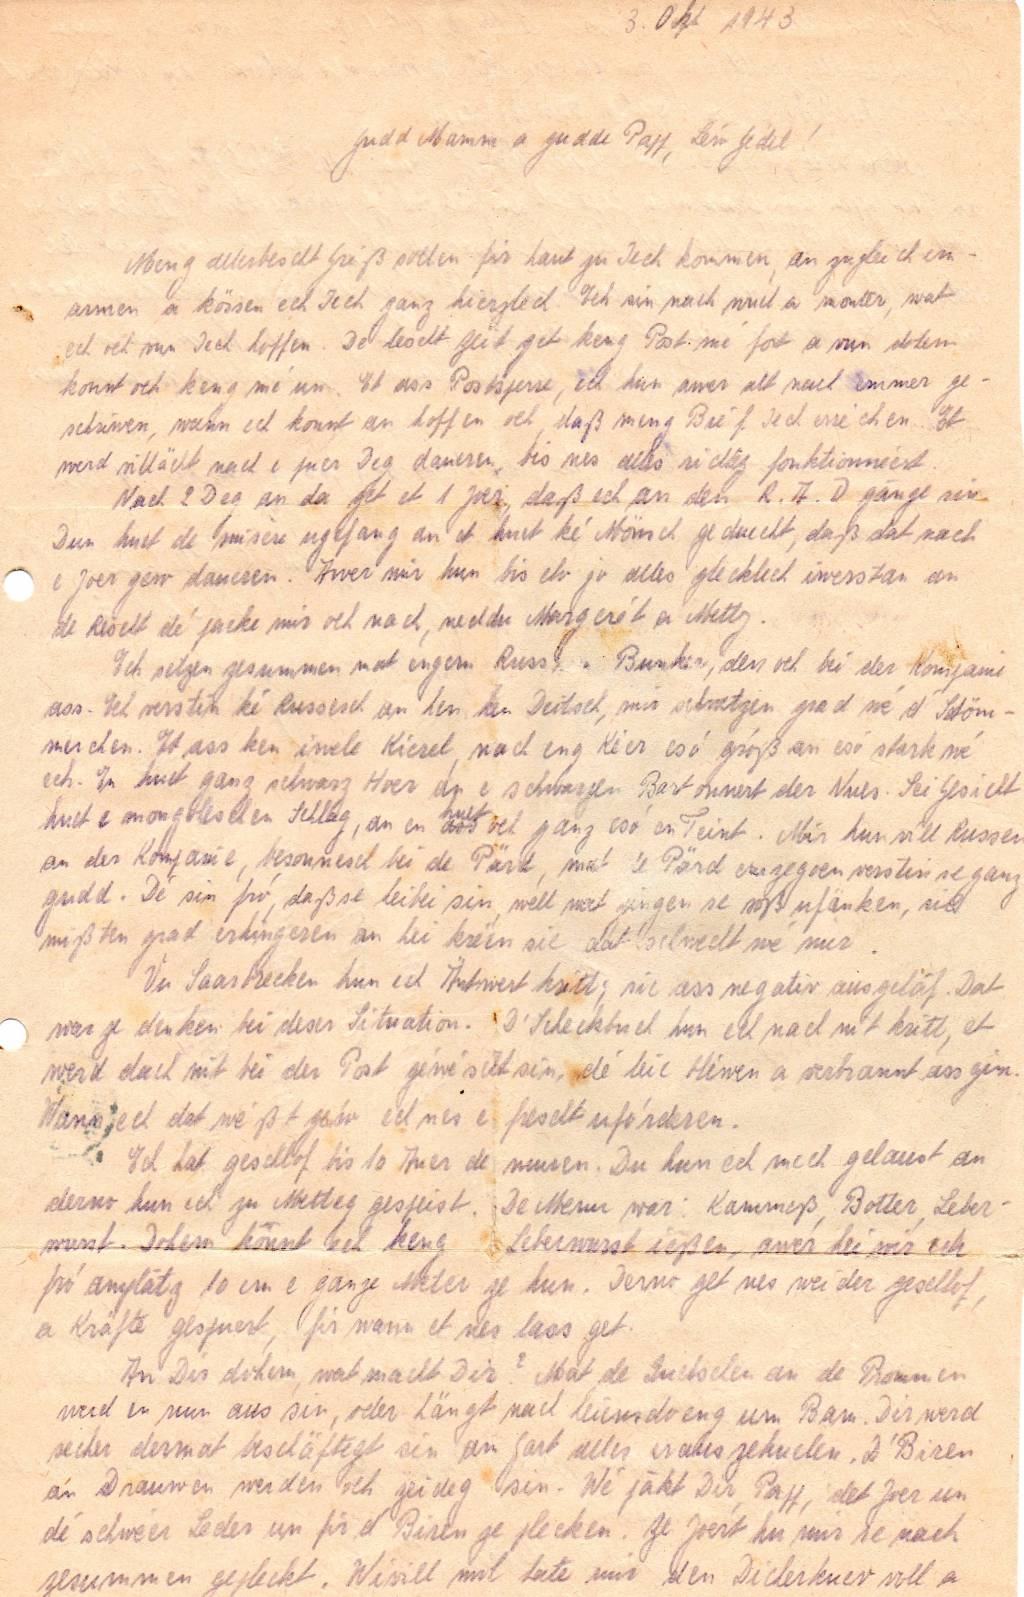 3. Okt 1943
Gudd Mamm a gudde Papp, Léiw Jedel!
Meng allerbescht Gréiß sollen fir haut zu Iech kommen, an zugleich em-
armen a kössen ech Iech ganz hierzlech. Ech sin nach mul a monter, wat
ech och vun Iech hoffen. De lescht Zeit get keng Post mé fort a vun dohem
konnt och keng mé un. Et ass Postsperre, ech hun awer alt nach emmer ge-
schriwen, wann ech konnt an hoffen och, daß meng Bréif Iech erréichen. Et
werd villächt nach e puer Deg daueren, bis nes alles richteg fonktionnéert.
Nach 2 Deg an da get et 1 Joer, daß ech an den R. A. D gänge sin
Dun huet de misère ugefang an et huet ké Mönsch geduecht, daß dat nach
e Joer géw daueren. Awer mir hun bis elo jo alles glecklech iwerstan an
de Rescht dé packe mir och nach, neddu Margerét a Metty.
Ech setzen zesummen mat engem Russ Bunker, den och bei der Kompanie
ass. Ech verstin ké Russesch an hen ken Deitsch, mir schwetzen grad wé d'Stöm-
merchen. Et ass ken iwele Kierel, nach eng Kéier esó gróß an esó stark wé
ech. En huet ganz schwarz Hoer an e schwarzen Bart önnert der Nues. Sei Gesicht
huet e mongoleschen Schlag, an en huet och ganz esó en Teint. Mir hun vill Russen
an der Kompanie, besonnesch bei de Pärd, mat de Pärd emzegoen verstin se ganz
gudd. Dé sin fró, daß se heibei sin, well wat gingen se soß ufänken, sie
mißten grad erhingeren an hei kréen sie dat selwecht wé mir.
Vu Saarbrecken hun ech Äntwert kritt, sie ass negativ ausgelaf. Dat
war ze denken bei deser Situation. D'Scheckbuch hun ech nach nit kritt, et
werd dach nit bei der Post gewéscht sin, dé heie bliwen a verbrannt ass gin.
Wann ech dat wéßt géw ech nes e frescht ufórderen.
Ech hat geschlof bis 10 Auer de muren. Du hun ech mech gelaust an
derno hun ech zu Metteg gespeist. De Menu war: Kammeß, Botter, Leber-
wurst. Dohem könnt ech keng Leberwurst ießen, awer hei wir ech
fró anplatz 10 cm e ganze Meter ze hun. Derno get nes weider geschlof,
a Kräfte gespuert, fir wann et nes lass get.
An Dir dohem, wat macht Dir? Mat de Quetschen an de Prommen
werd en nun aus sin, oder hängt nach heiansdo eng um Bam. Dir werd
secher dermat beschäftegt sin am Gart alles erauszehuelen. D'Biren
an Drauwen werden och zeideg sin. Wé päkt Dir, Papp, dat Joer un
dé schwéer Leder un fir d'Biren ze plecken. Ze Joert hu mir se nach
zesummen geplekt. Wivill mol hate mir den Dicherkuerf voll a